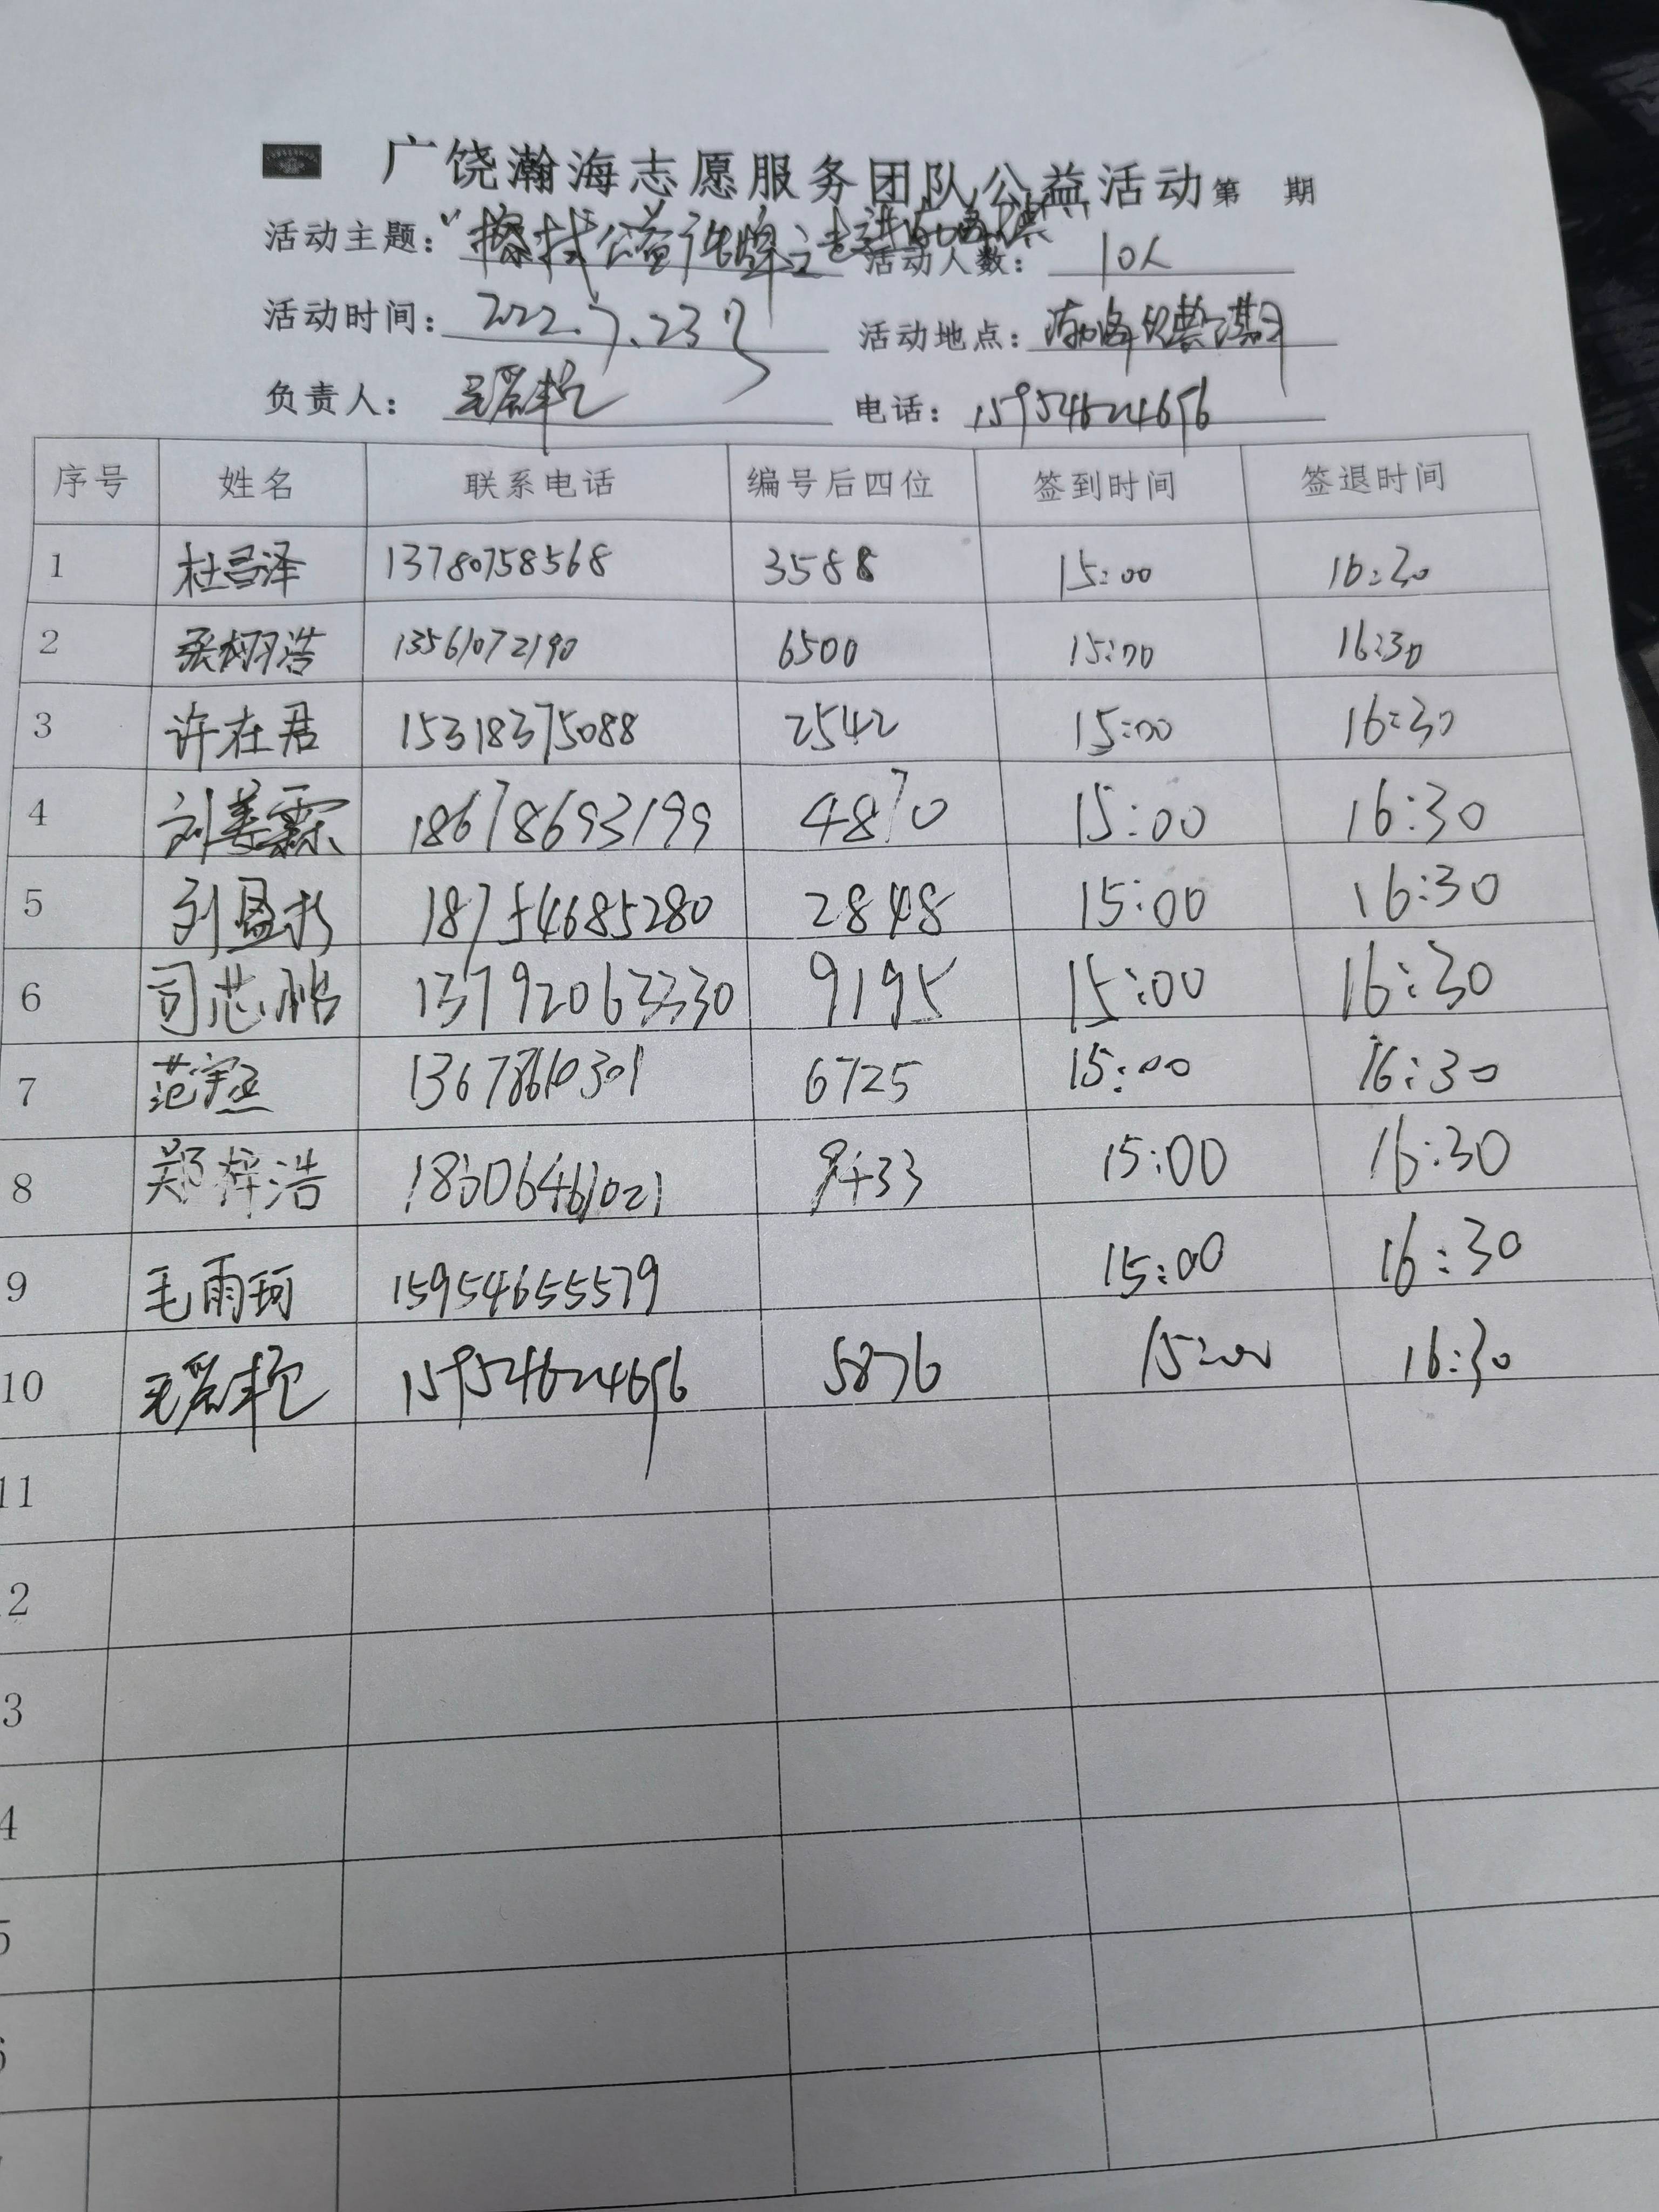 广饶瀚海志愿服务团队公益活动第 期
活动主题：“擦拭公益 活动人数：10人
活动时间：2022.7.23日 活动地点：
负责人： 电话：15954624696
序号 姓名 联系电话 编号后四位 签到时间 签退时间
1 杜吕泽 13780758568 3588 15:00 16:30
2 张栩浩 13561072190 6500 15:00 16:30
3 许在君 15318375088 2542 15:00 16:30
4 刘美霖 18678693199 4870 15:00 16:30
5 刘盈杉 18754685280 2848 15:00 16:30
6 司芯 13792063330 9195 15:00 16:30
7 范宇 6725 15:00 16:30
8 郑梓浩 9433 15:00 16:30
9 毛雨珂 15954655579 15:00 16:30
10 15954624696 5876 15:00 16:30
11
2
3
4
5
6